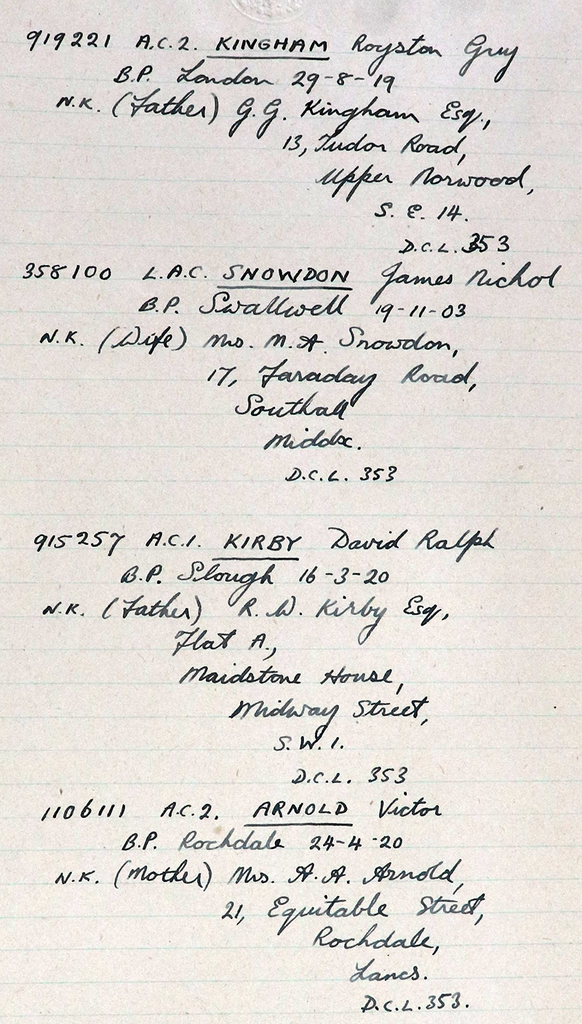 919221 A.C.2. KINGHAM Royston Guy
B.P. London 29-8-19
N.K. (Father) G.G. Kingham Esq.,
13, Tudor Road,
Upper Norwood,
S. E. 14.
D.C.L. 353
358100 L.A.C. SNOWDON James Nichol
B.P. Swallwell 19-11-03
N.K. (Wife) Mrs. M.A. Snowdon,
17, Faraday Road,
Southall
Middx.
D.C.L. 353
915257 A.C.1. KIRBY David Ralph
B.P. Slough 16-3-20
N.K. (Father) R. W. Kirby Esq,
Flat A.,
Maidstone House,
Midway Street,
S.W.1.
D.C.L. 353
1106111 A.C.2. ARNOLD Victor
B.P. Rochdale 24-4-20
N.K. (Mother) Mrs. A.A. Arnold,
21, Equitable Street,
Rochdale,
Lancs.
D.C.L. 353.